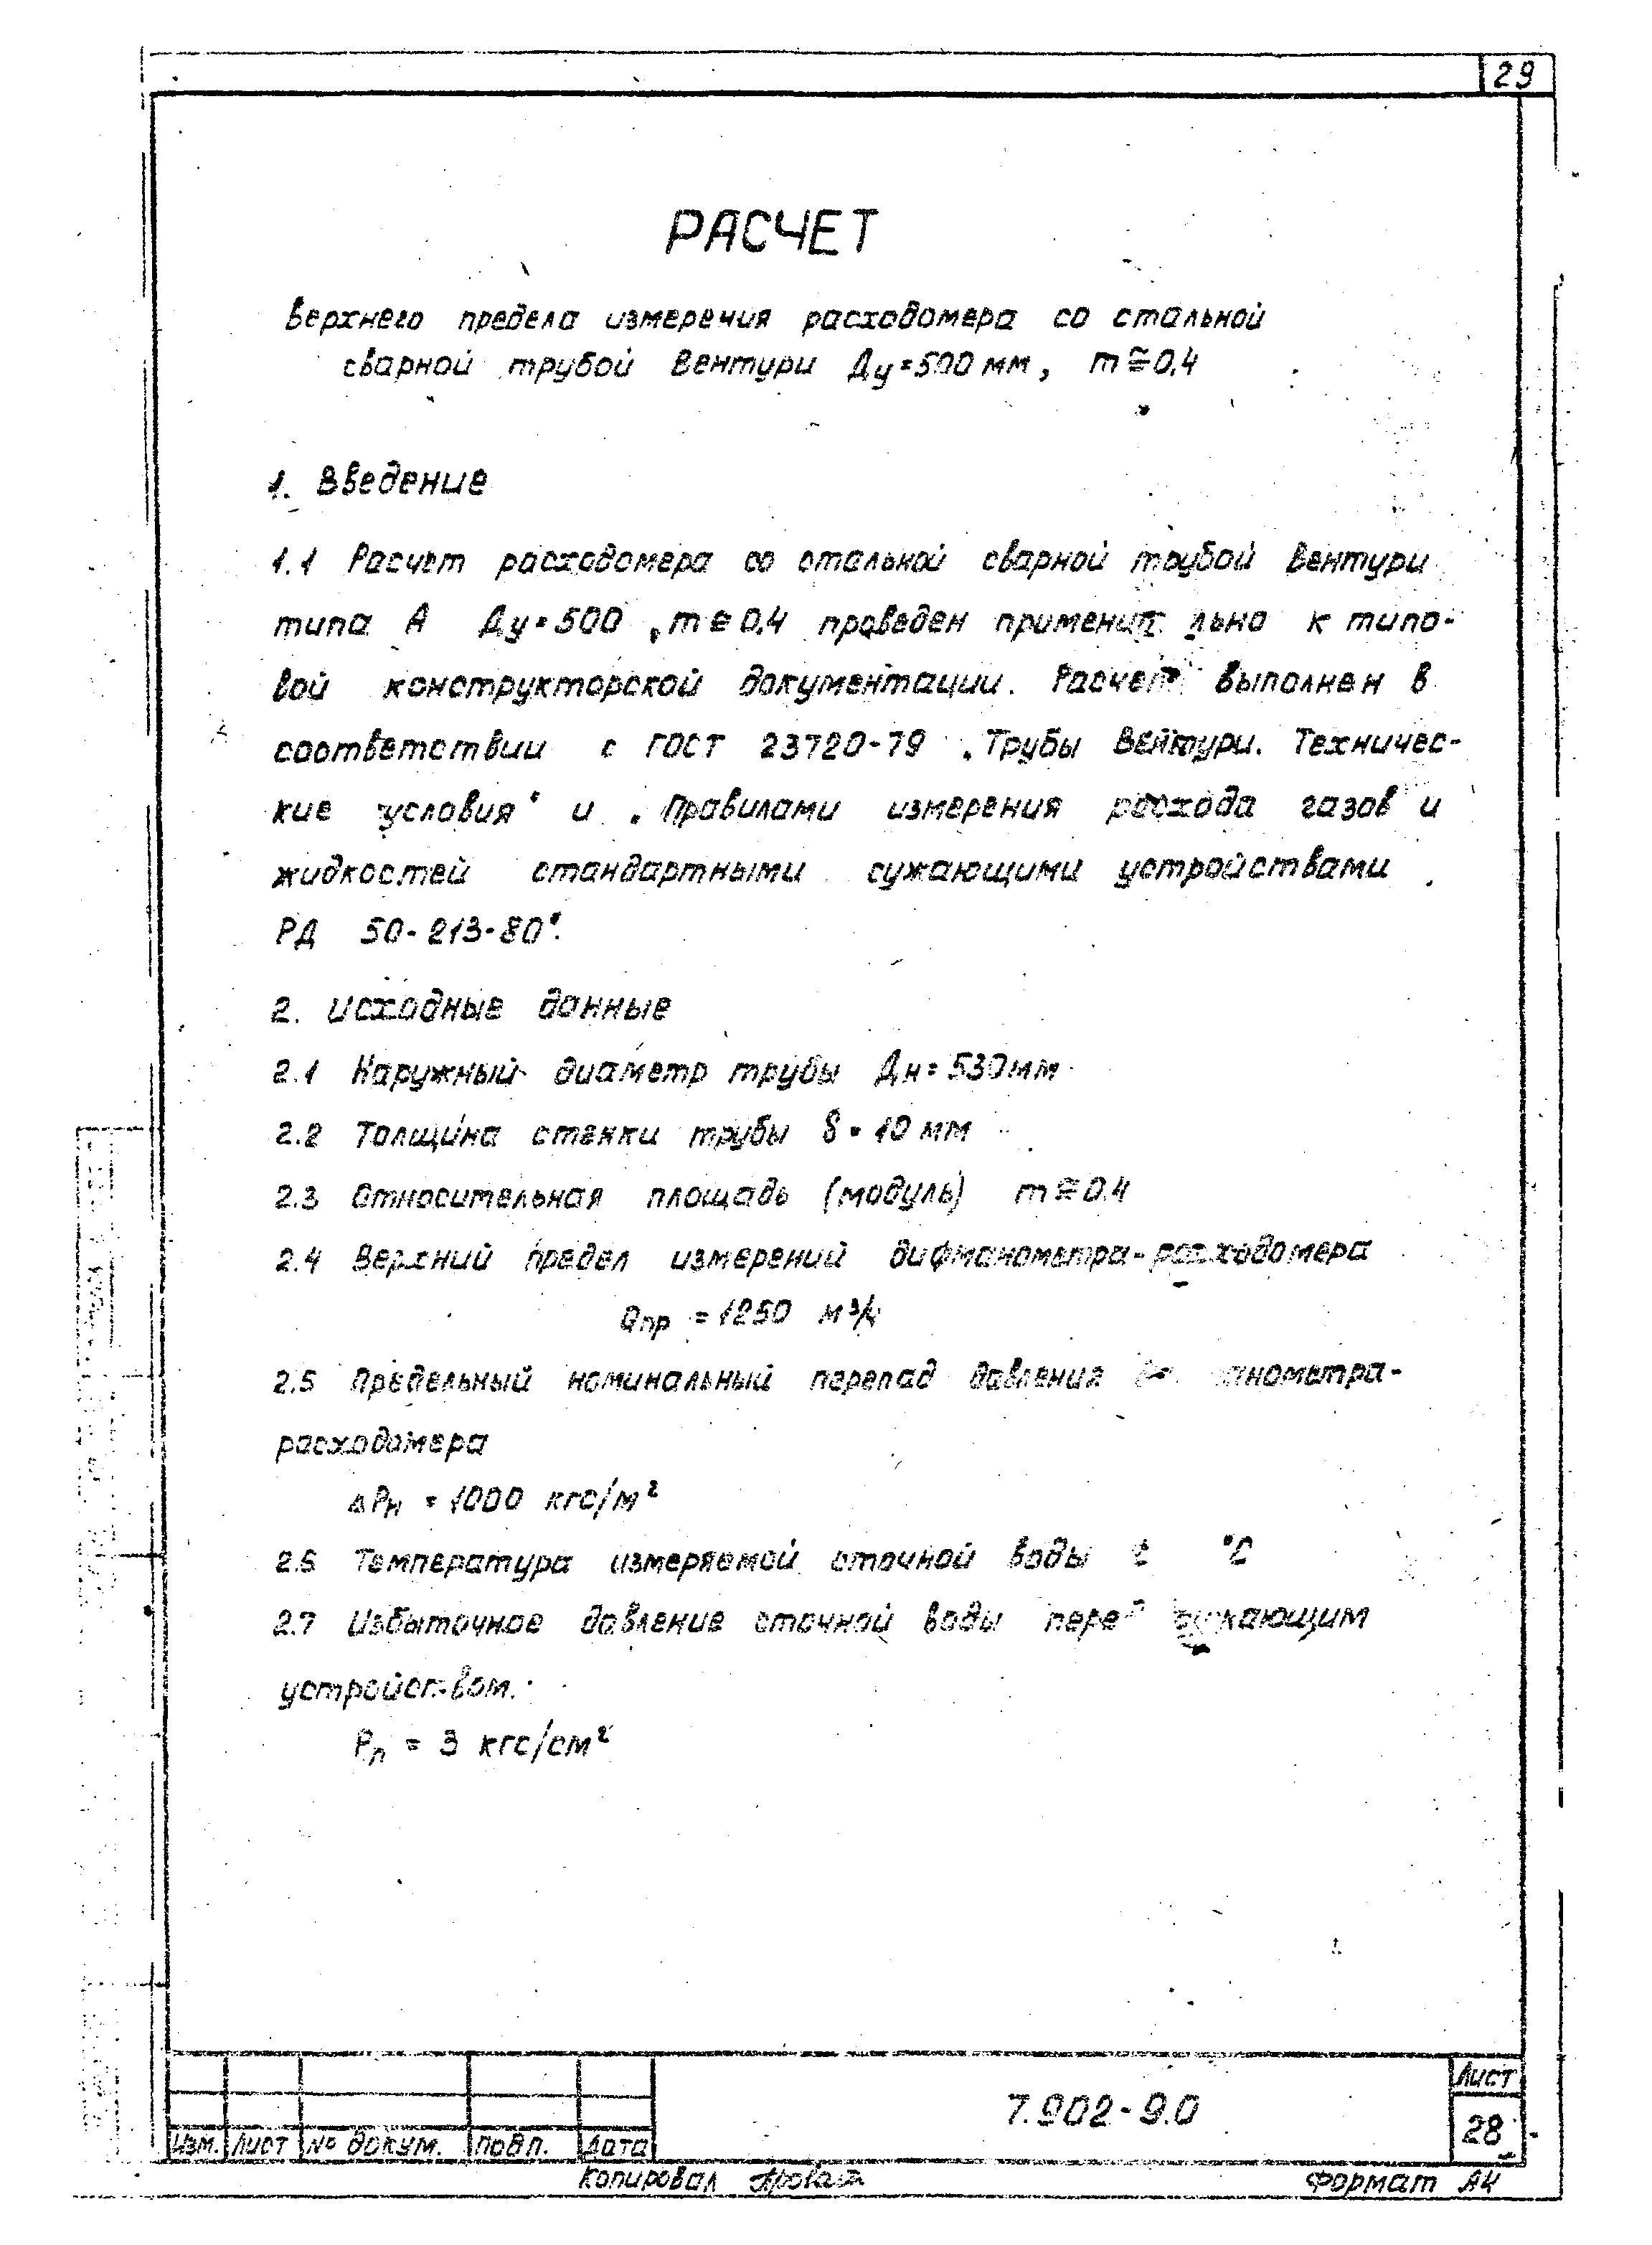 29
РАСЧЕТ
верхнего предела измерения расходомера со стальной
сварной трубой Вентури Ду=500 мм, m≅0,4
1. Введение
1.1 Расчет расходомера со стальной сварной трубой Вентури
типа А Ду=500, m≅0,4 проведен применительно к типо-
вой конструкторской документации. Расчет выполнен в
соответствии с ГОСТ 23720-79 „Трубы Вентури. Техничес-
кие условия" и „Правилами измерения расхода газов и
жидкостей стандартными сужающими устройствами
РД 50-213-80".
2. Исходные данные
2.1 Наружный диаметр трубы Дн=530мм
2.2 Толщина стенки трубы δ=10 мм
2.3 Относительная площадь (модуль) m≅0,4
2.4 Верхний предел измерений дифманометра-расходомера
Qпр = 1250 м³/ч
2.5 Предельный номинальный перепад давления анометра-
расходомера
ΔPн = 1000 кгс/м²
2.6 Температура измеряемой сточной воды t °C
2.7 Избыточное давление сточной воды перед сужающим
устройством.
Pп = 3 кгс/см²
7.902-9.0
Лист
28
Изм. Лист № докум. Подп. Дата
Копировал
Формат А4